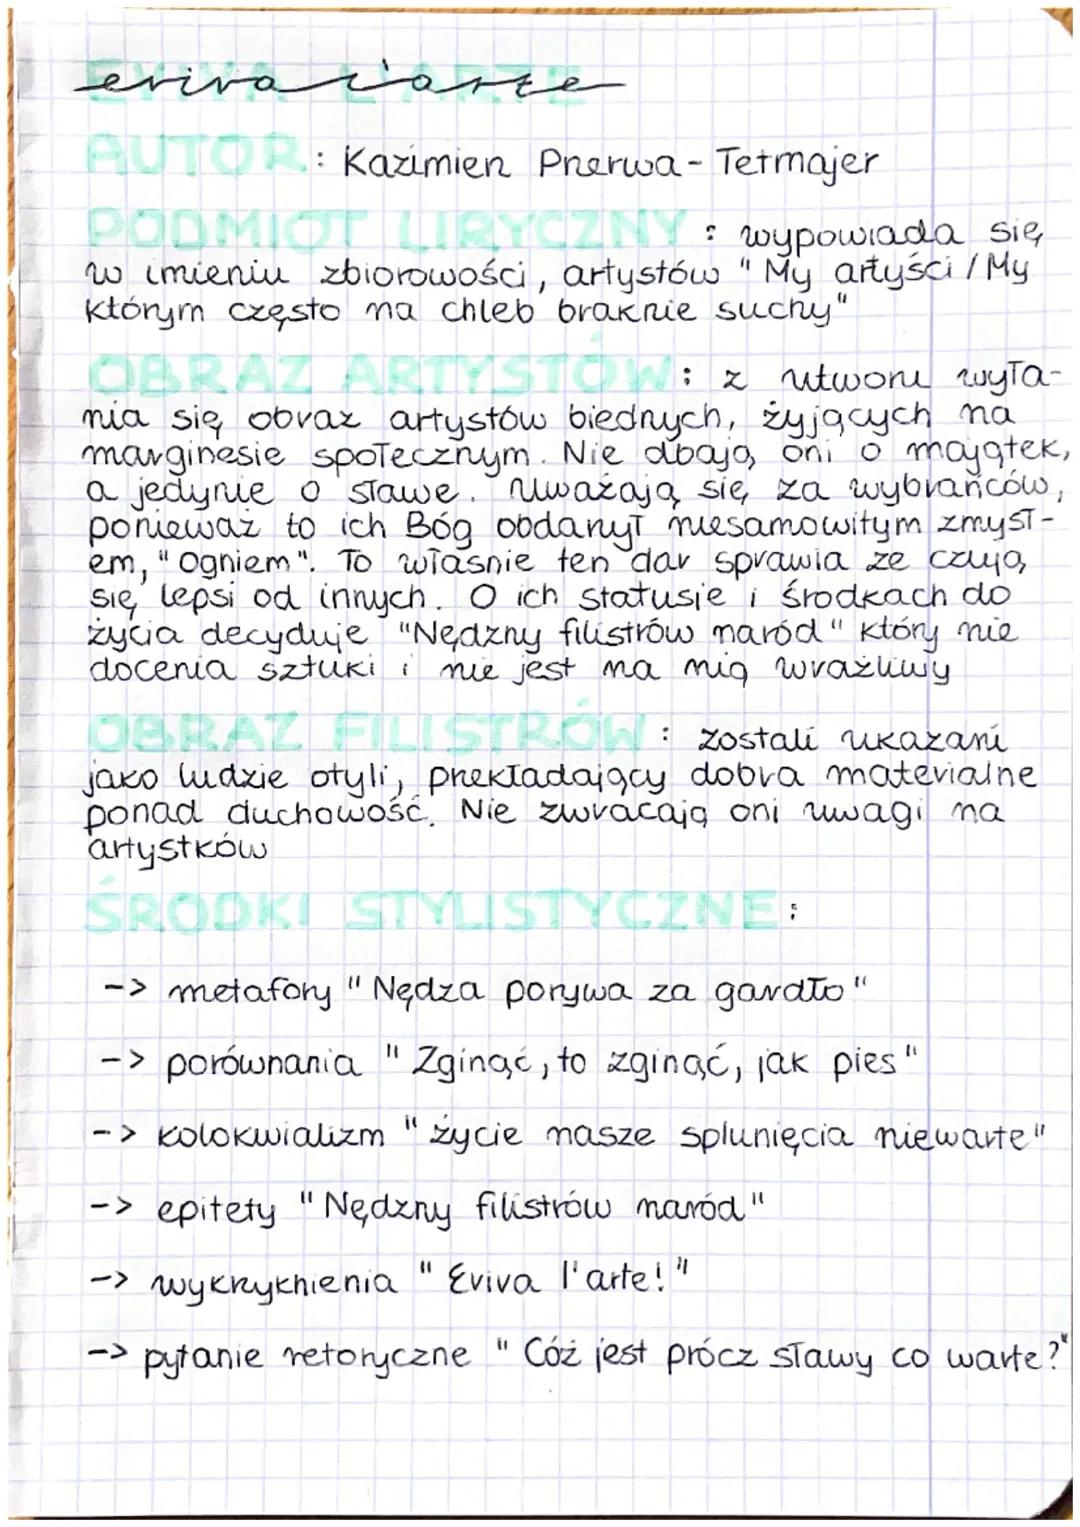 EVIVA L'ARTE
eviva l'arte
AUTOR: Kazimierz Przerwa-Tetmajer
PODMIOT LIRYCZNY: wypowiada się
w imieniu zbiorowości, artystów "My artyści / My
którym często na chleb braknie suchy"
OBRAZ ARTYSTÓW: z utworu wyła-
nia się obraz artystów biednych, żyjących na
marginesie społecznym. Nie dbają oni o majątek,
a jedynie o sławe. Uważają się za wybrańców,
ponieważ to ich Bóg obdarzył niesamowitym zmysł-
em, "Ogniem". To własnie ten dar sprawia że czują
się lepsi od innych. O ich statusie i środkach do
życia decyduje "Nędzny filistrów naród" który nie
docenia sztuki i nie jest na nią wrażliwy
OBRAZ FILISTRÓW: zostali ukazani
jako ludzie otyli, przekładający dobra materialne
ponad duchowość. Nie zwracają oni uwagi na
artystków
ŚRODKI STYLISTYCZNE:
-> metafory "Nędza porywa za gardło"
-> porównania "Zginąć, to zginąć, jak pies"
-> kolokwializm "życie nasze splunięcia niewarte"
-> epitety "Nędzny filistrów naród"
-> wykrzyknienia "Eviva l'arte!"
-> pytanie retoryczne "Cóż jest prócz sławy co warte?"